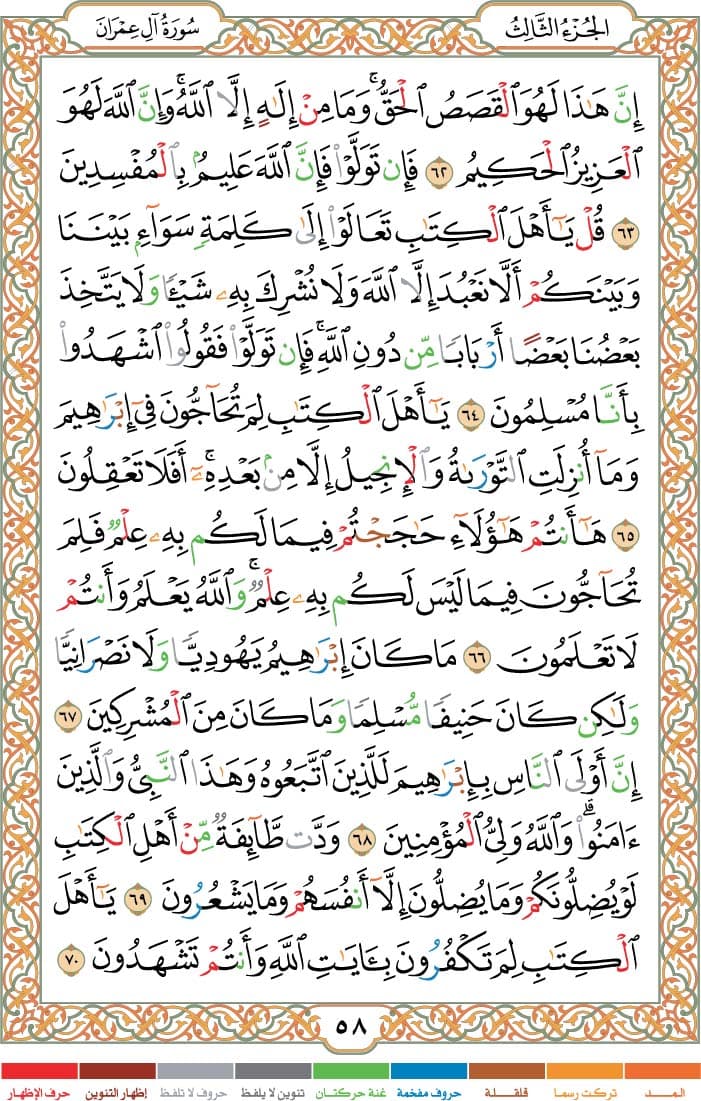 الجُزْءُ الثَّالِثُ
سُورَةُ آلِ عِمْرَانَ
إِنَّ هَٰذَا لَهُوَ ٱلْقَصَصُ ٱلْحَقُّ ۚ وَمَا مِنْ إِلَٰهٍ إِلَّا ٱللَّهُ ۚ وَإِنَّ ٱللَّهَ لَهُوَ
ٱلْعَزِيزُ ٱلْحَكِيمُ ٦٢ فَإِن تَوَلَّوْا۟ فَإِنَّ ٱللَّهَ عَلِيمٌۢ بِٱلْمُفْسِدِينَ
٦٣ قُلْ يَٰٓأَهْلَ ٱلْكِتَٰبِ تَعَالَوْا۟ إِلَىٰ كَلِمَةٍ سَوَآءٍۭ بَيْنَنَا
وَبَيْنَكُمْ أَلَّا نَعْبُدَ إِلَّا ٱللَّهَ وَلَا نُشْرِكَ بِهِۦ شَيْـًٔا وَلَا يَتَّخِذَ
بَعْضُنَا بَعْضًا أَرْبَابًا مِّن دُونِ ٱللَّهِ ۚ فَإِن تَوَلَّوْا۟ فَقُولُوا۟ ٱشْهَدُوا۟
بِأَنَّا مُسْلِمُونَ ٦٤ يَٰٓأَهْلَ ٱلْكِتَٰبِ لِمَ تُحَآجُّونَ فِىٓ إِبْرَٰهِيمَ
وَمَآ أُنزِلَتِ ٱلتَّوْرَىٰةُ وَٱلْإِنجِيلُ إِلَّا مِنۢ بَعْدِهِۦٓ ۚ أَفَلَا تَعْقِلُونَ
٦٥ هَٰٓأَنتُمْ هَٰٓؤُلَآءِ حَٰجَجْتُمْ فِيمَا لَكُم بِهِۦ عِلْمٌ فَلِمَ
تُحَآجُّونَ فِيمَا لَيْسَ لَكُم بِهِۦ عِلْمٌ ۚ وَٱللَّهُ يَعْلَمُ وَأَنتُمْ
لَا تَعْلَمُونَ ٦٦ مَا كَانَ إِبْرَٰهِيمُ يَهُودِيًّا وَلَا نَصْرَانِيًّا
وَلَٰكِن كَانَ حَنِيفًا مُّسْلِمًا وَمَا كَانَ مِنَ ٱلْمُشْرِكِينَ ٦٧
إِنَّ أَوْلَى ٱلنَّاسِ بِإِبْرَٰهِيمَ لَلَّذِينَ ٱتَّبَعُوهُ وَهَٰذَا ٱلنَّبِىُّ وَٱلَّذِينَ
ءَامَنُوا۟ ۗ وَٱللَّهُ وَلِىُّ ٱلْمُؤْمِنِينَ ٦٨ وَدَّت طَّآئِفَةٌ مِّنْ أَهْلِ ٱلْكِتَٰبِ
لَوْ يُضِلُّونَكُمْ وَمَا يُضِلُّونَ إِلَّآ أَنفُسَهُمْ وَمَا يَشْعُرُونَ ٦٩ يَٰٓأَهْلَ
ٱلْكِتَٰبِ لِمَ تَكْفُرُونَ بِـَٔايَٰتِ ٱللَّهِ وَأَنتُمْ تَشْهَدُونَ ٧٠
٥٨
المـــد تركت رسما قلقـلة حروف مفخمة غنة حركتان تنوين لا يلفظ حروف لا تلفظ إظهار التنوين حرف الإظهار